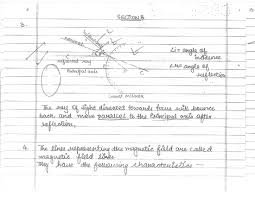 SECTION B
3.
Li = angle of
incidence
Lr = angle of
reflection
reflected ray
Principal axis
C
The ray of light directed towards focus will bounce
back and move parallel to the Principal axis after
reflection.
4. The lines representing the magnetic field are called
magnetic field lines.
They have the following characteristics -